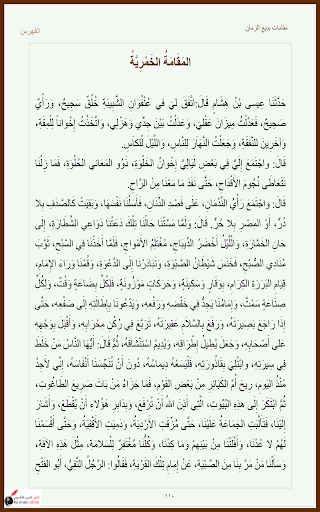 مقامات بديع الزمان
الفهرس
المَقَامَةُ الخَمْرِيَّةُ
حَدَّثَنَا عِيسى بْنُ هِشَامٍ قَالَ: اتَّفَقَ لِي في عُنْفُوَانِ الشَّبِيبَةِ خُلُقٌ سَجِيحٌ، وَرَأْيٌ
صَحِيحٌ، فَعَدَّلْتُ مِيزَانَ عَقْلِي، وَعَدَلْتُ بَيْنَ جِدِّي وَهَزْلِي، وَاتَّخَذْتُ إِخْوَاناً لِلْمِقَةِ،
وَآخَرِينَ لِلنَّفَقَةِ، وَجَعَلْتُ النَّهَارَ لِلْنَّاسِ، وَاللَّيْلَ لِلْكاسِ.
قَالَ: وَاجْتَمَعَ إِلَيَّ فِي بَعْضِ لَيَالِيَّ إِخْوانُ الخَلْوَةِ، ذَوُو المَعَانِي الحُلْوَةِ، فَمَا زِلْنَا
نَتَعَاطَى نُجُومَ الأَقْدَاحِ، حَتَّى نَفَدَ مَا مَعَنَا مِنَ الرَّاحِ.
قَالَ: وَاجْتَمَعَ رَأْيُ النُّدْمَانِ، عَلى فَصْدِ الدِّنَانِ، فَأَسَلْنَا نَفْسَهَا، وَبَقِيَتْ كَالصَّدَفِ بِلا
دُرٍّ، أَوِ المِصْرِ بِلا حُرٍّ. قَالَ: وَلَمَّا مَسَّتْنَا حَالُنَا تِلْكَ دَعَتْنَا دَوَاعِي الشَّطَارَةِ، إِلَى
حَانِ الخَمَّارَةِ، وَاللَّيْلُ أَخْضَرُ الدِّيبَاجِ، مُغْتَلِمُ الأَمْوَاجِ، فَلَمَّا أَخَذْنَا فِي السَّبْحِ، ثَوَّبَ
مُنَادِي الصُّبْحِ، فَخَنَسَ شَيْطَانُ الصَّبْوَةِ، وَتَبَادَرْنَا إِلَى الدَّعْوَةِ، وَقُمْنَا وَرَاءَ الإِمَامِ،
قِيَامَ البَرَرَةِ الكِرَامِ، بِوَقَارٍ وَسَكِينَةٍ، وَحَرَكَاتٍ مَوْزُونَةٍ، فَلِكُلِّ بِضَاعَةٍ وَقْتٌ، وَلِكُلِّ
صِنَاعَةٍ سَمْتٌ، وَإِمَامُنَا يَجِدُّ فِي خَفْضِهِ وَرَفْعِهِ، وَيَدْعُونَا بِإِطَالَتِهِ إِلَى صَفْعِهِ، حَتَّى
إِذَا رَاجَعَ بَصِيرَتَهُ، وَرَفَعَ بِالسَّلامِ عَقِيرَتَهُ، تَرَبَّعَ فِي رُكْنِ مِحْرَابِهِ، وَأَقْبَلَ بِوَجْهِهِ
عَلَى أَصْحَابِهِ، وَجَعَلَ يُطِيلُ إِطْرَاقَهُ، وَيُدِيمُ اسْتِنْشَاقَهُ، ثُمَّ قَالَ: أَيُّهَا النَّاسُ مَنْ خَلَطَ
فِي سِيرَتِهِ، وَابْتُلِيَ بِقَاذُورَتِهِ، فَلْيَسَعْهُ دِيمَاسُهُ، دُونَ أَنْ تُنَجِّسَنَا أَنْفَاسُهُ، إِنِّي لأَجِدُ
مُنْذُ اليَومِ، رِيحَ أُمِّ الكَبَائِرِ مِنْ بَعْضِ القَوْمِ، فَمَا جَزَاءُ مَنْ بَاتَ صَرِيعَ الطَّاغُوتِ،
ثُمَّ ابْتَكَرَ إِلى هذِهِ البُيُوتِ، الَّتِي أَذِنَ اللهُ أَنْ تُرْفَعَ، وَبِدَابِرِ هؤُلاءِ أَنْ يُقْطَعَ، وَأَشَارَ
إِلَيْنَا، فَتَأَلَّبَتِ الجَمَاعَةُ عَلَيْنَا، حَتَّى مُزِّقَتِ الأَرْدِيَةُ، وَدَمِيَتِ الأَقْفِيَةُ، وَحَتَّى أَقْسَمْنَا
لَهُمْ لا عُدْنَا، وَأَفْلَتْنَا مِنْ بَيْنِهِمْ وَمَا كِدْنَا، وَكُلُّنَا مُغْتَفِرٌ لِلْسَلامَةِ، مِثْلَ هذِهِ الآفَةِ،
وَسَأَلْنَا مَنْ مَرَّ بِنَا مِنَ الصِّبْيَةِ، عَنْ إِمَامِ تِلْكَ القَرْيَةِ، فَقَالُوا: الرَّجُلُ التَّقِيُّ، أَبُو الفَتْحِ
١١٠